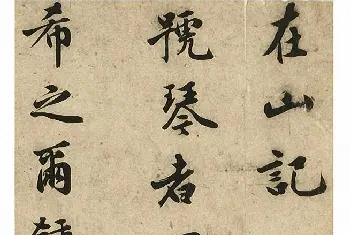 在山記
號琴者
希之爾